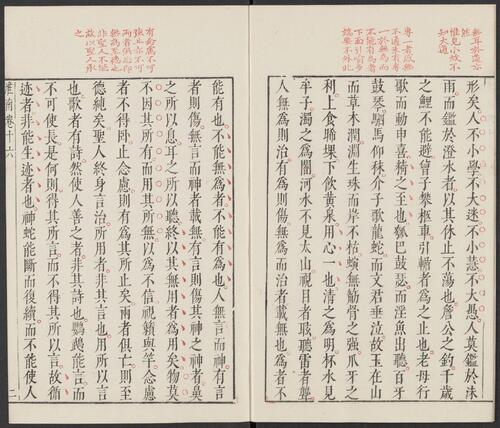 惟見小故不
知大道
專一者感無
不通未有專
一於無為而
不能有為者
下面引喻多
端要不外此
形矣人不小學不大迷不小慧不大愚人莫鑑於沬
雨而鑑於澄水者以其休止不蕩也詹公之釣千歲
之鯉不能避曾子攀柩車引輴者為之止也老母行
歌而動申喜精之至也瓠巴鼓瑟而淫魚出聽百牙
鼓琴駟馬仰秣介子歌龍蛇而文君垂泣故玉在山
而草木潤淵生珠而岸不枯螾無筋骨之強爪牙之
利上食晞堁下飲黃泉用心一也清之為明杯水見
牟子濁之為闇河水不見太山視日者眩聽雷者聾
人無為則治有為則傷無為而治者載無也為者不
兩者俱泯即
無為至德也
非聖人不能
故以聖人承
之
能有也不能無為者不能有為也人無言而神有言
者則傷無言而神者載無有言則傷其神之神者鼻
之所以息耳之所以聽終以其無用者為用矣物莫
不因其所有而用其所無以為不信視籟與竽念慮
者不得臥止念慮則有為其所止矣兩者俱亡則至
德純矣聖人終身言治所用者非其言也用所以言
也歌者有詩然使人善之者非其詩也鸚鵡能言而
不可使長是何則得其所言而不得其所以言故循
迹者非能生迹者也神蛇能斷而復續而不能使人
淮南卷十六
二